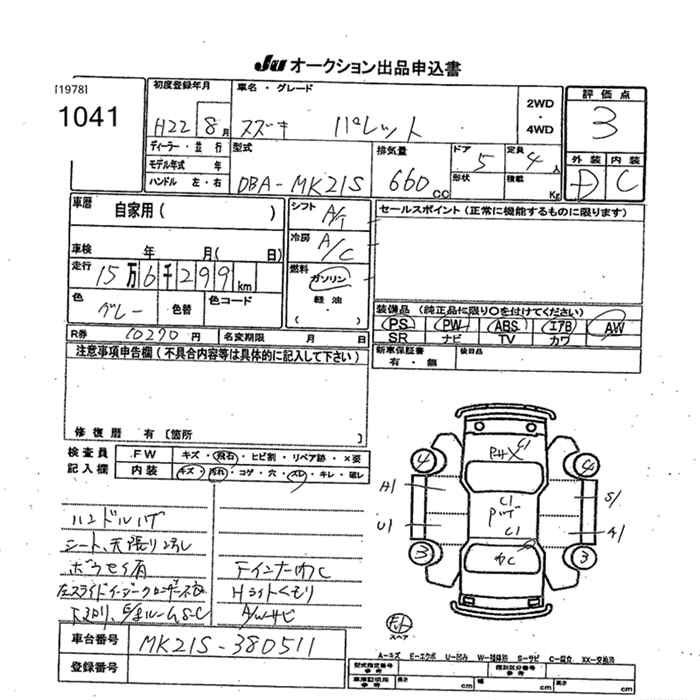 JU オークション出品申込書
[1978]
1041
初度登録年月
H22 8月
車名・グレード
スズキ パレット
2WD
・
4WD
評価点
3
外装 内装
D C
ディーラー・並行
モデル年式 年
ハンドル 左・右
型式
DBA-MK21S
排気量
660 CC
ドア 5
形状
定員 4人
積載 Kg
車歴
自家用( )
車検 年 月( 日)
走行
15万6千299km
色 グレー
色替
色コード
シフト A/T
冷房 A/C
燃料
ガソリン
軽油
( )
セールスポイント(正常に機能するものに限ります)
装備品(純正品に限り○を付けてください)
PS PW ABS エアB AW
SR ナビ TV カワ
新車保証書
有・無
後日品
R券 10270円
名変期限 月 日
注意事項申告欄(不具合内容等は具体的に記入して下さい)
修復歴 有[箇所
検査員
記入欄
FW キズ・飛石・ヒビ割・リペア跡・×要
内装 キズ・汚れ・コゲ・穴・スレ・キレ・破レ
ハンドルハゲ
シート、天張り汚れ
ボウセイ有
Fインナーわれ
Hライトくもり
A/Wサビ
車台番号 MK21S-380511
登録番号
C1
C1
C1
A1
U1
S1
A1
4
4
3
3
スペア
A-キズ E-エクボ U-凹み W-補修跡 S-サビ C-腐食 XX-交換済
型式指定番号
参考
類別区分番号
参考
車庫証明用
参考
長さ cm
幅 cm
高さ cm